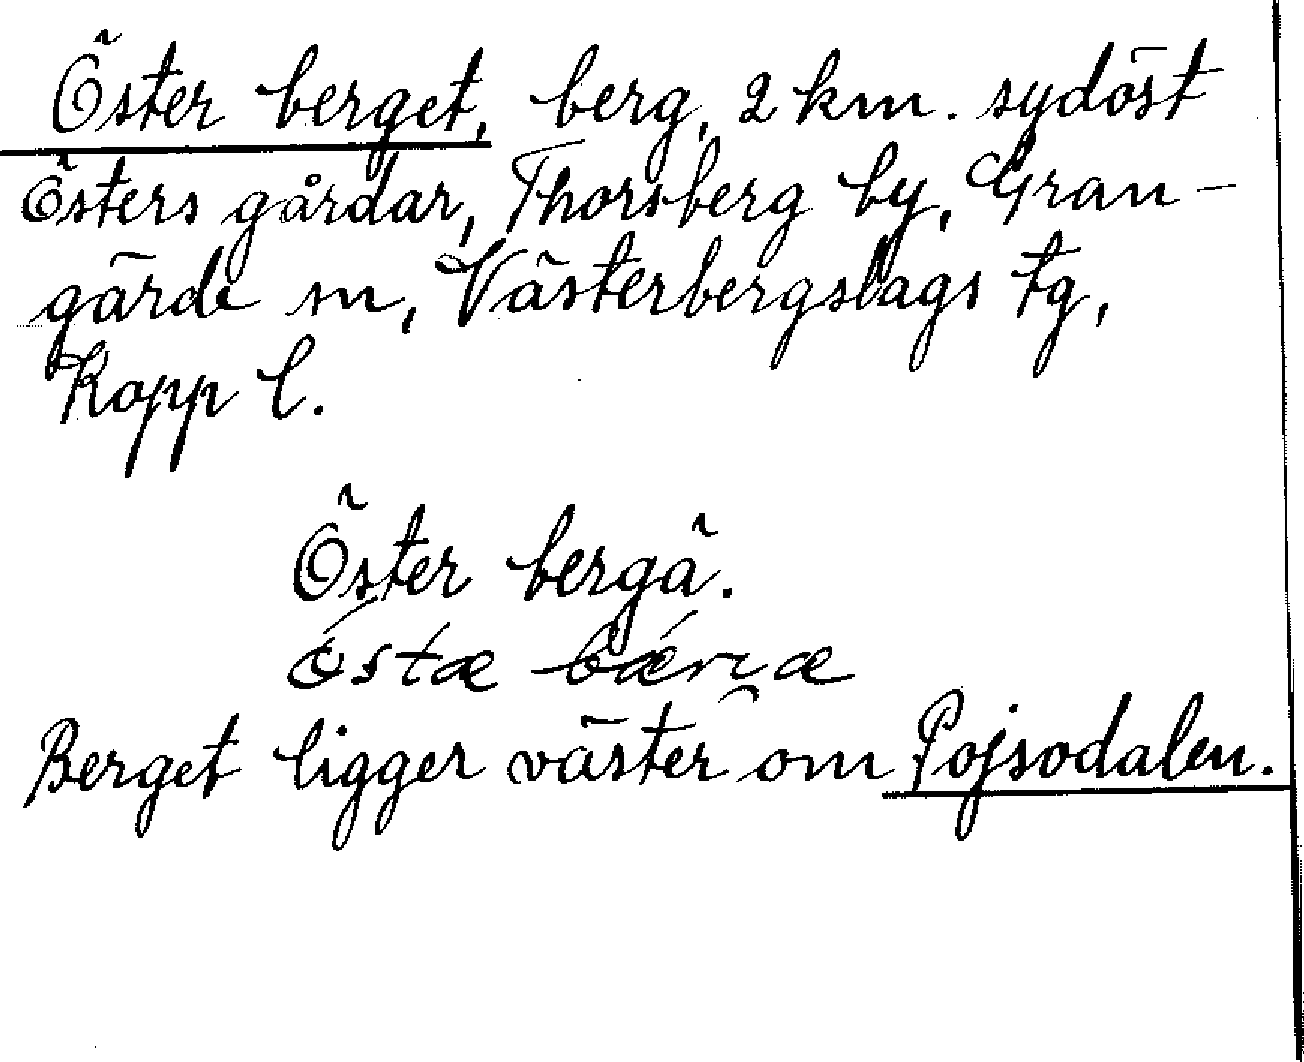 Öster berget, berg, 2 km. sydöst
Östers gårdar, Thorsberg by, Gran-
gärde sn, Västerbergslags tg,
Kopp l.
Öster bergä.
Berget ligger väster om Pojsodalen.